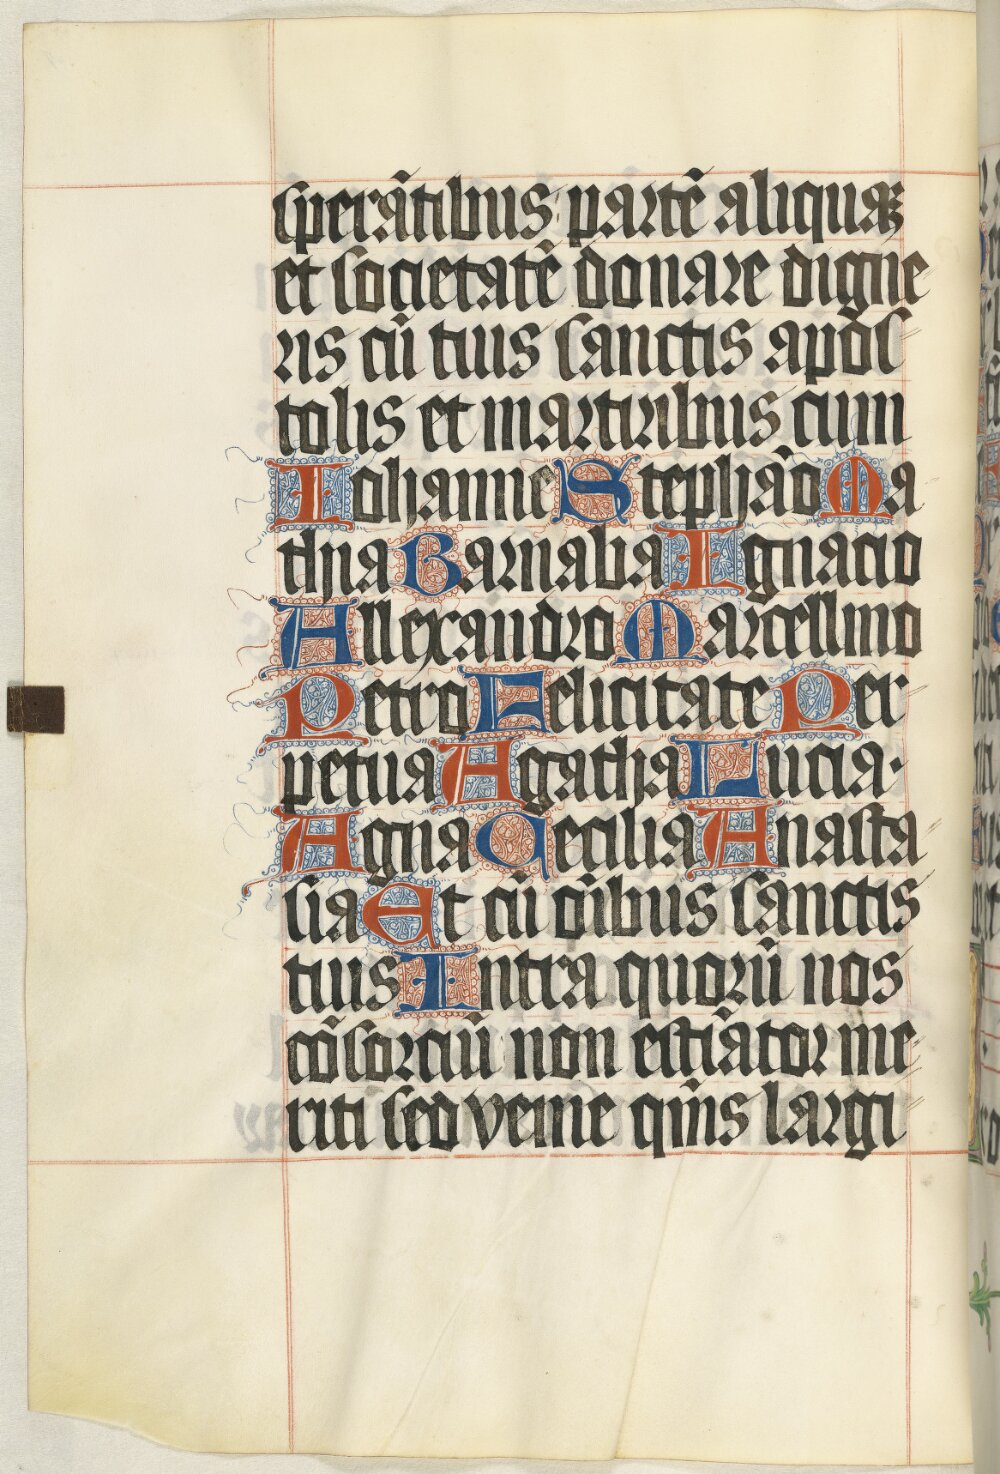 sperātibus partē aliquaꝫ
et societatē donare digne
ris cū tuis sanctis apos
tolis et martiribus cum
Iohanne Stephāo Ma
thia Barnaba Ignacio
Allexandro Marcellino
Petro Felicitate Per
petua Agatha Lucia·
Agna Cecilia Anasta
sia Et cū oībus sanctis
tuis Intra quorū nos
cōsorciū non estīator me
riti sed venie qm̄s largi